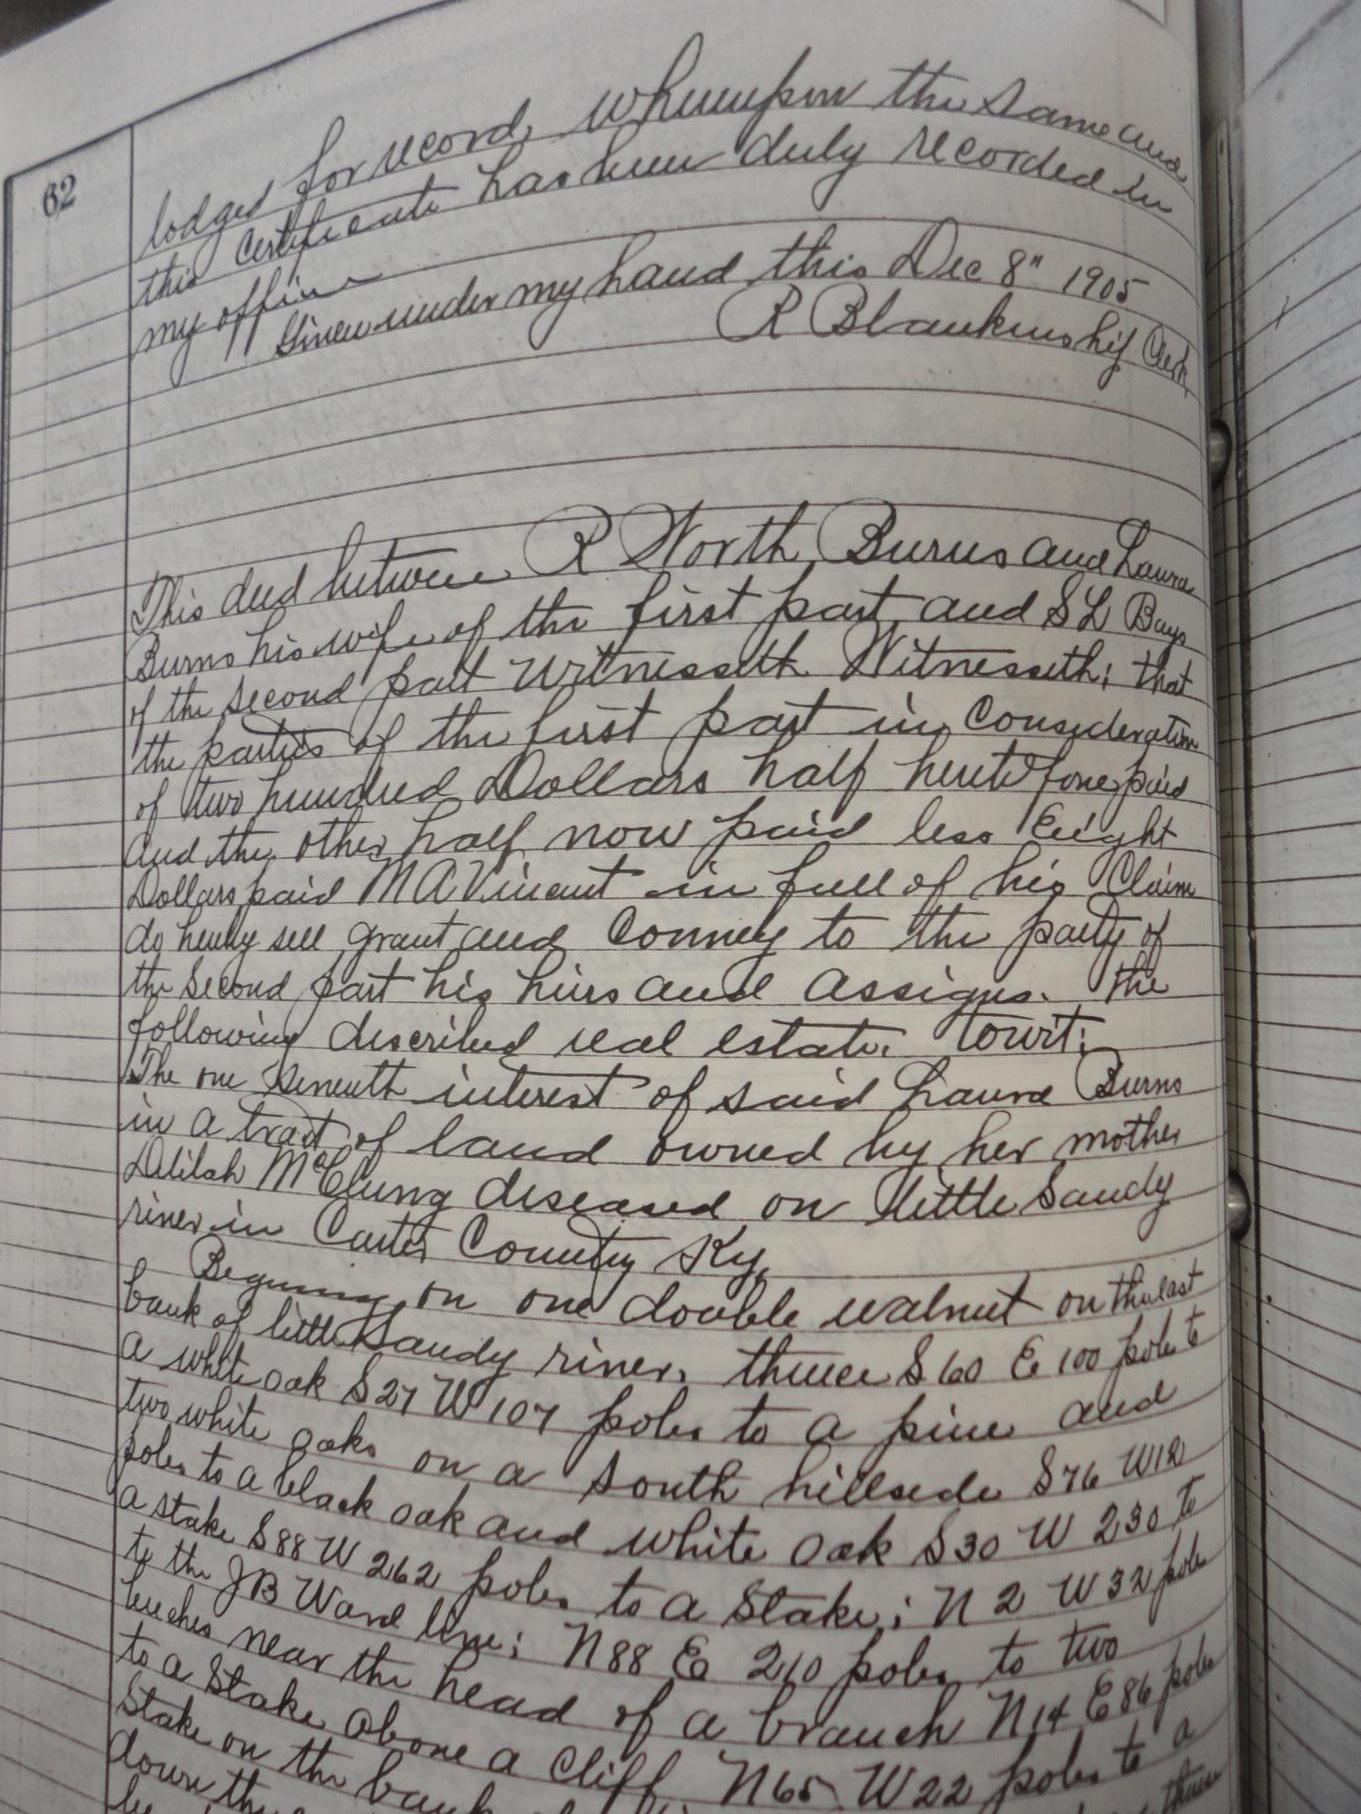 62
lodged for record, whereupon the same and
this certificate has been duly recorded in
my office
Given under my hand this Dec 8" 1905
R Blankenship Clerk
This deed between R North Burns and Laura
Burns his wife of the first part and S L Bays
of the second part Witnesseth Witnesseth; that
the parties of the first part in Consideration
of two hundred Dollars half heretofore paid
and the other half now paid less Eight
Dollars paid M A Vincent in full of his Claim
do hereby sell grant and Convey to the party of
the second part his heirs and assigns. the
following described real estate. towit;
The one seventh interest of said Laura Burns
in a tract of land owned by her mother
Delilah McClung deseased on little Sandy
river in Carter County Ky,
Begining on one double walnut on the east
bank of little Sandy river, thence S 60 E 100 poles to
a white oak S 27 W 107 poles to a pine and
two white oaks on a south hillside S 76 W 12
poles to a black oak and white oak S 30 W 230 to
a stake S 88 W 262 poles to a Stake; N 2 W 32 poles
to the J B Ward line; N 88 E 210 poles to two
beeches near the head of a branch N 14 E 86 poles
to a Stake above a Cliff N 65 W 22 poles to a
Stake on the bank of
down the